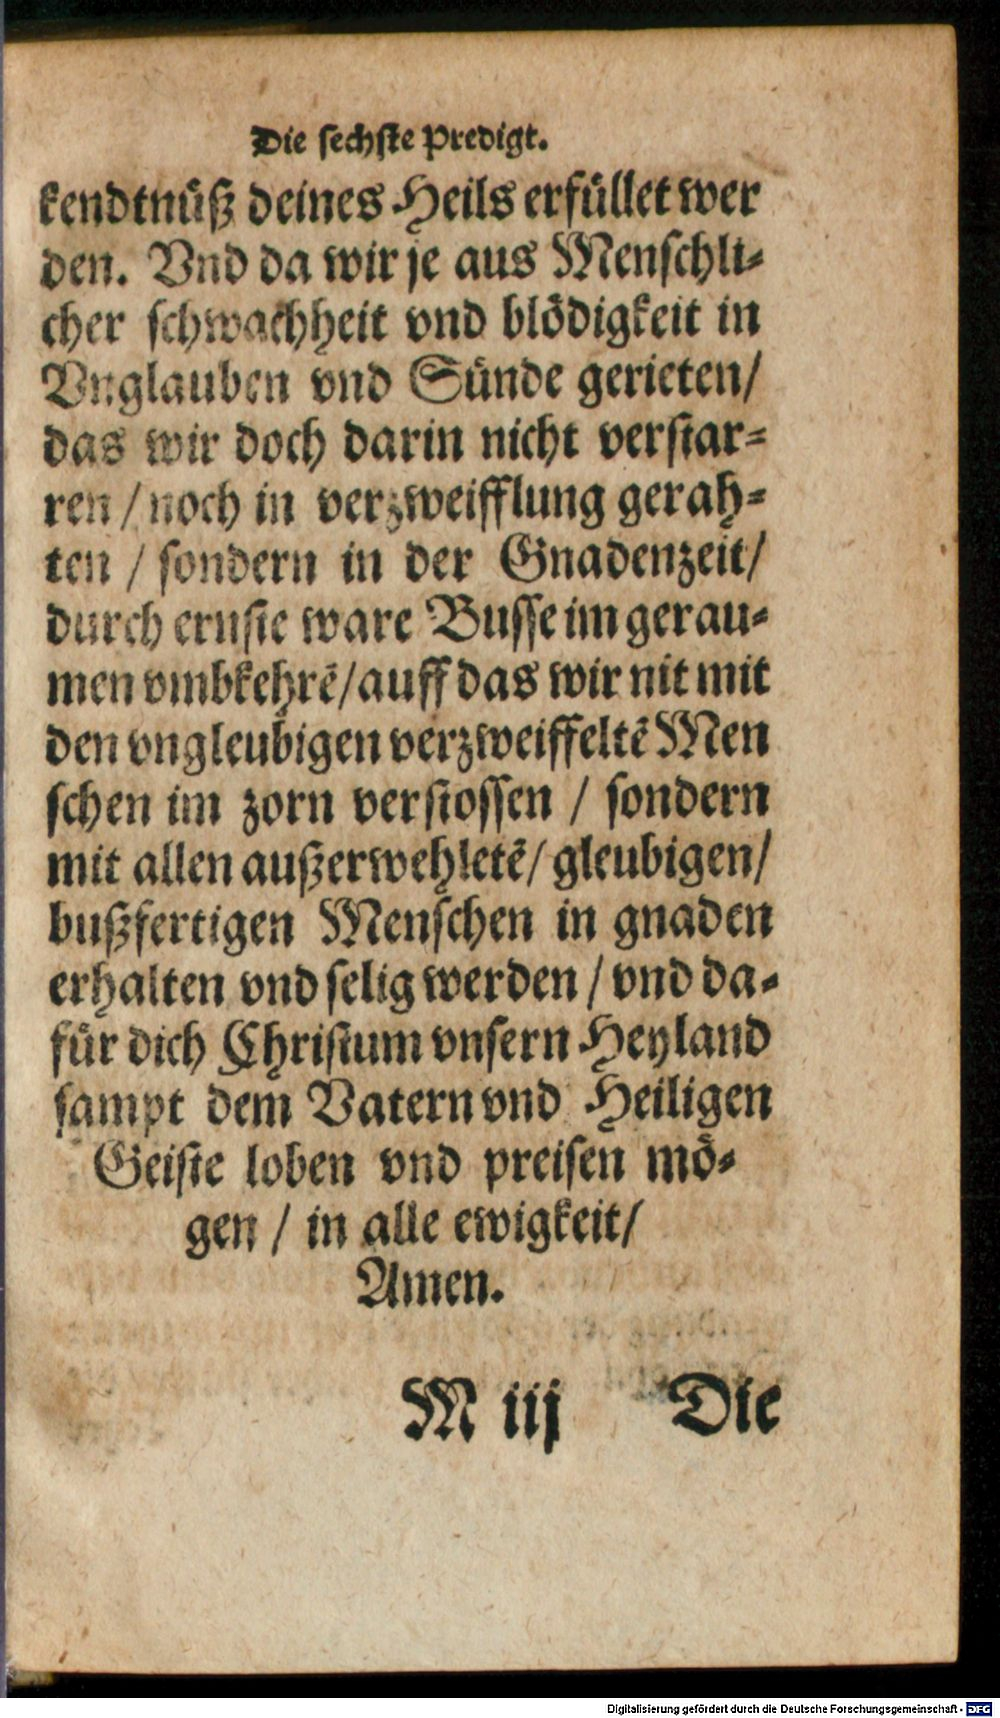 Die sechste Predigt.
kendtnüß deines Heils erfüllet wer
den. Vnd da wir je aus Menschli-
cher schwachheit vnd blödigkeit in
Vnglauben vnd Sünde gerieten/
das wir doch darin nicht verstar-
ren / noch in verzweifflung gerah-
ten / sondern in der Gnadenzeit/
durch ernste ware Busse im gerau-
men vmbkehrē/auff das wir nit mit
den vngleubigen verzweiffeltē Men
schen im zorn verstossen / sondern
mit allen außerwehletē/ gleubigen/
bußfertigen Menschen in gnaden
erhalten vnd selig werden / vnd da-
für dich Christum vnsern Heyland
sampt dem Vatern vnd Heiligen
Geiste loben vnd preisen mö-
gen / in alle ewigkeit/
Amen.
M iij Die
Digitalisierung gefördert durch die Deutsche Forschungsgemeinschaft - DFG